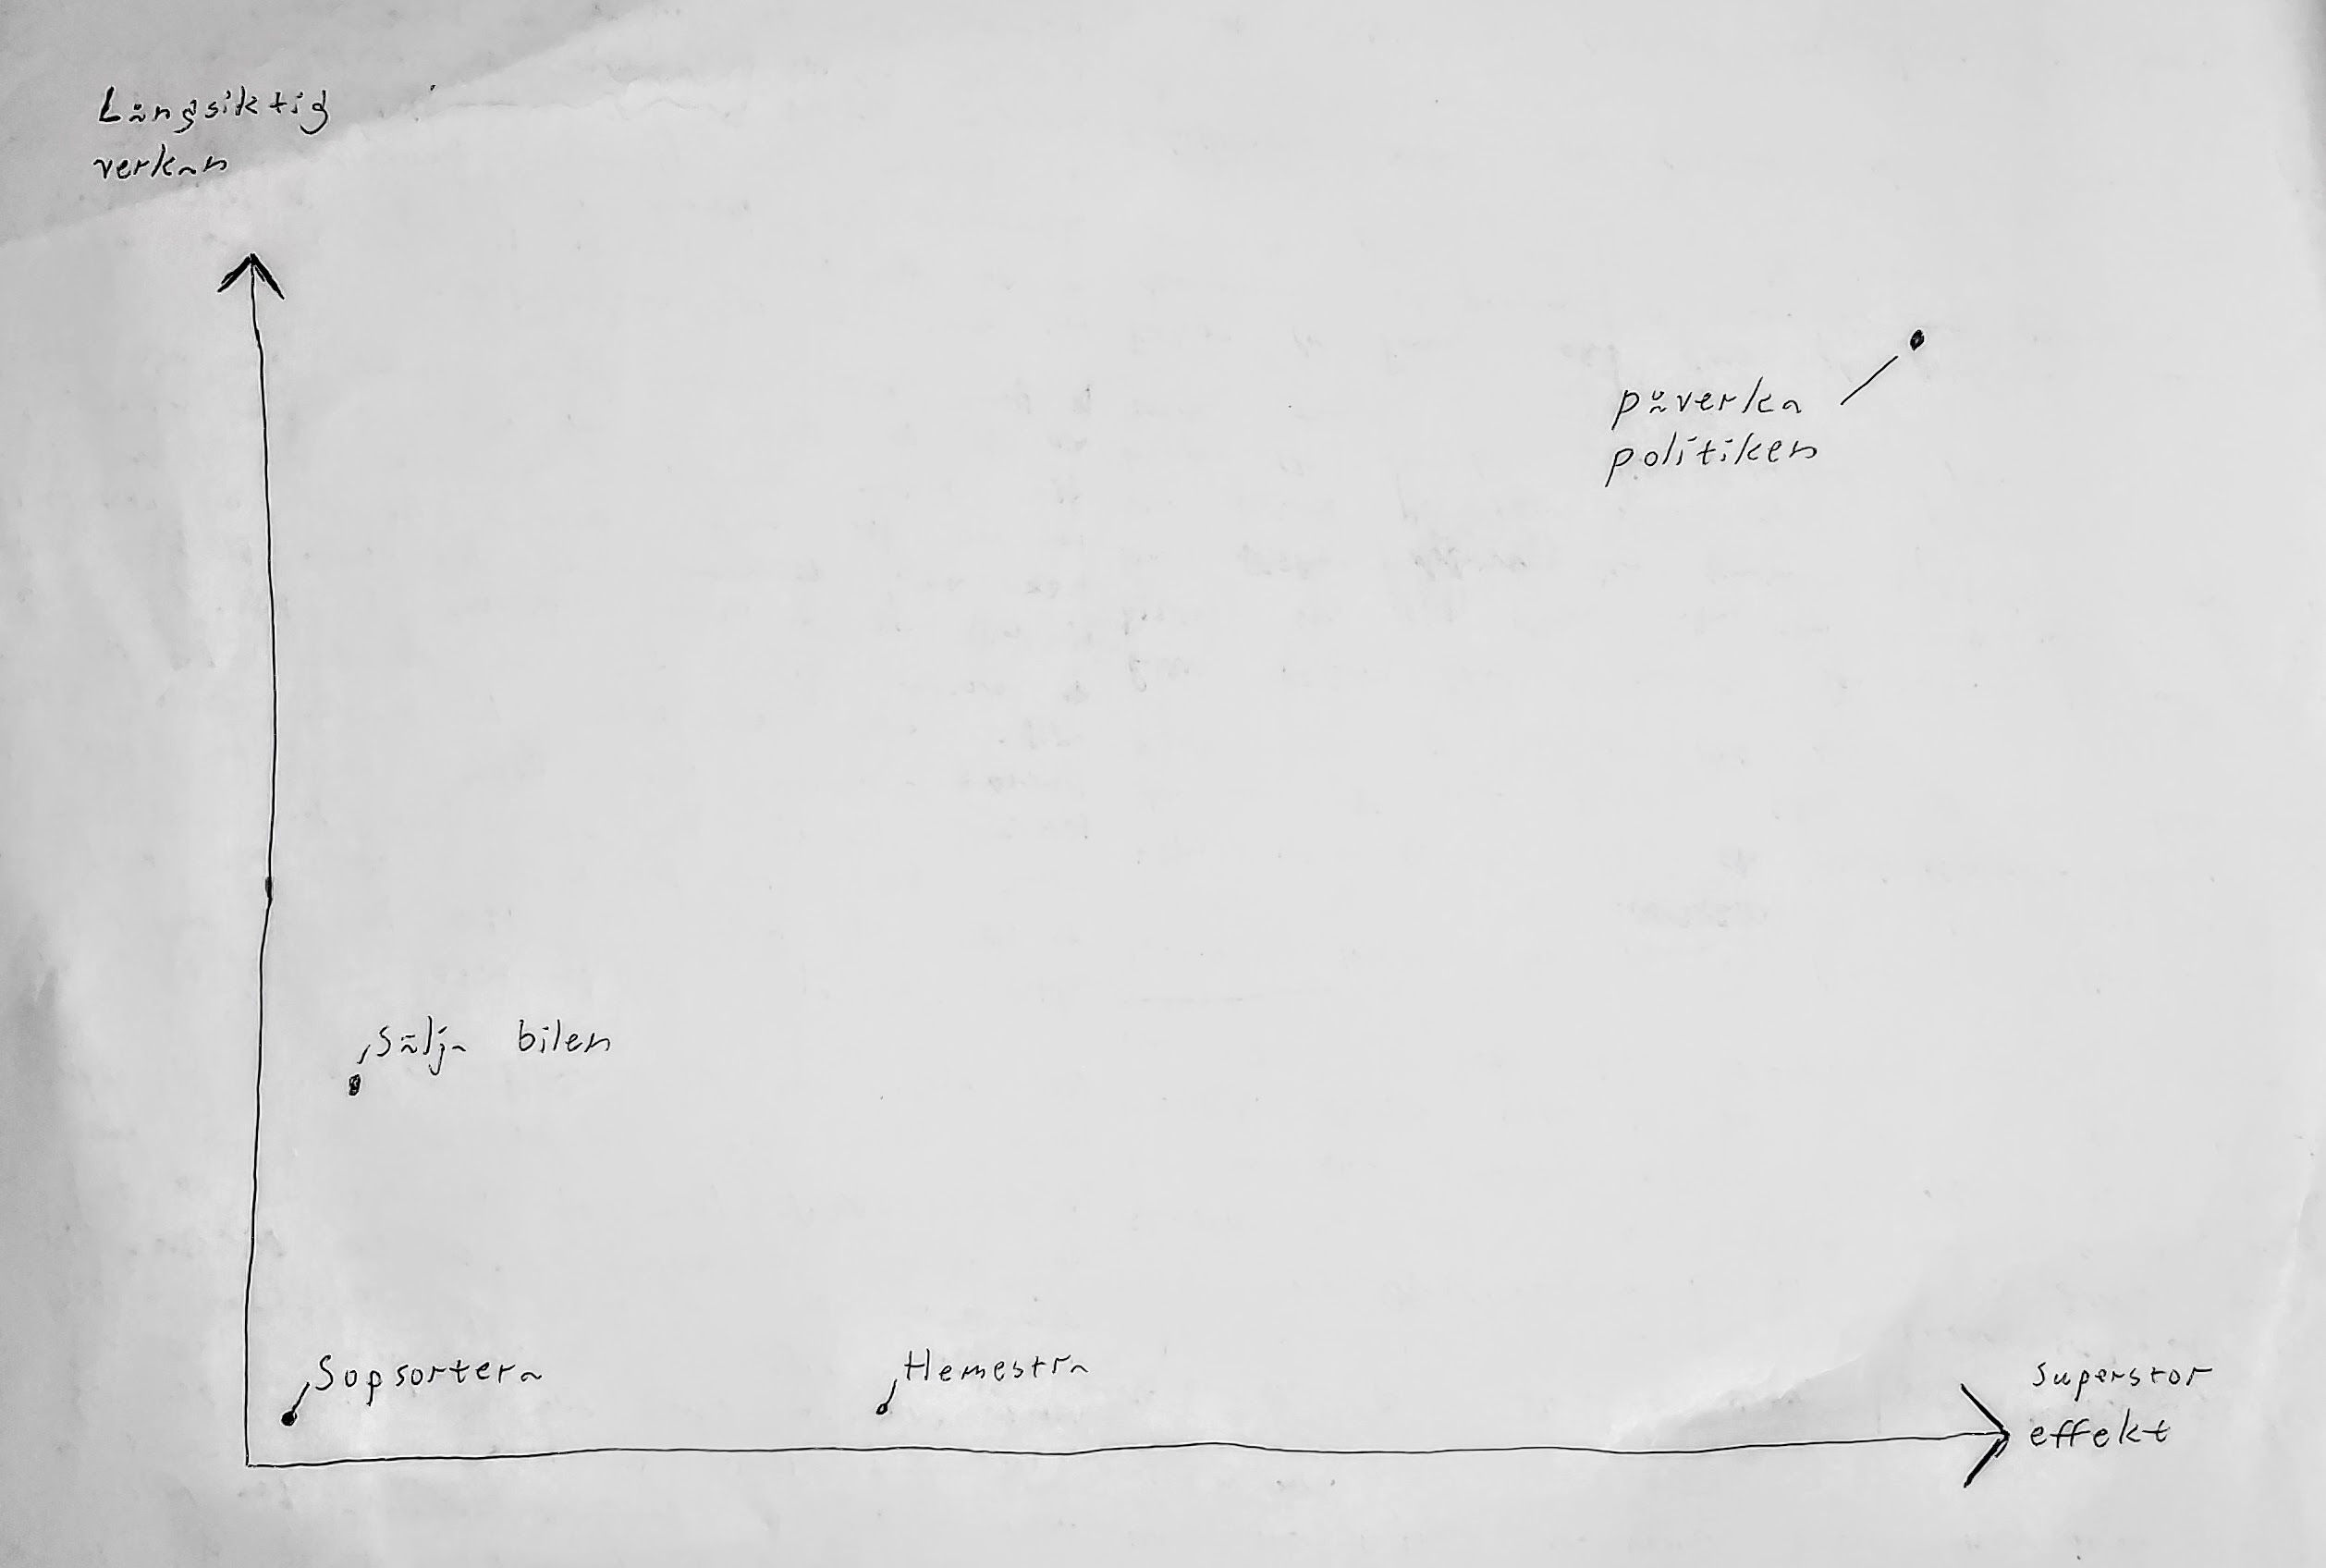 Långsiktig
verkan
påverka
politiken
sälja bilen
Sopsortera
Hemestra
superstor
effekt